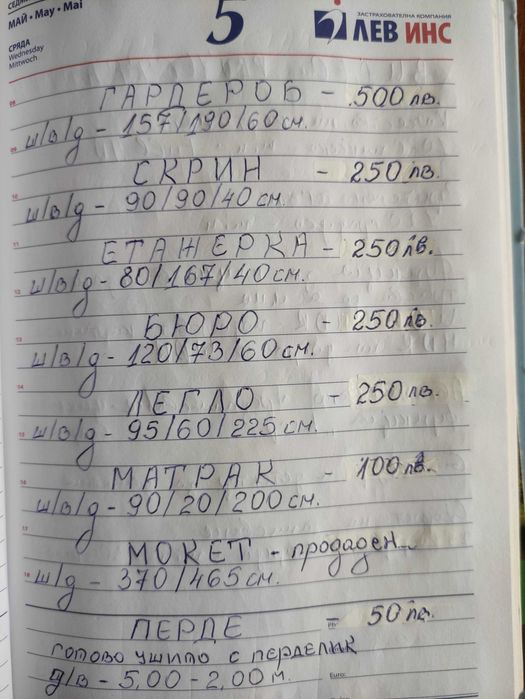 МАЙ • May • Mai
СРЯДА
Wednesday
Mittwoch
5
ЗАСТРАХОВАТЕЛНА КОМПАНИЯ
ЛЕВ ИНС
ГАРДЕРОБ - 500 лв.
ш/в/д - 157/190/60 см.
СКРИН - 250 лв.
ш/в/д - 90/90/40 см.
ЕТАЖЕРКА - 250 лв.
ш/в/д - 80/167/40 см.
БЮРО - 250 лв.
ш/в/д - 120/73/60 см.
ЛЕГЛО - 250 лв.
ш/в/д - 95/60/225 см.
МАТРАК - 100 лв.
ш/в/д - 90/20/200 см.
МОКЕТ - продаден
ш/д - 370/465 см.
ПЕРДЕ = 50 лв.
готово ушито с перделик
д/в - 5,00 - 2,00 м.